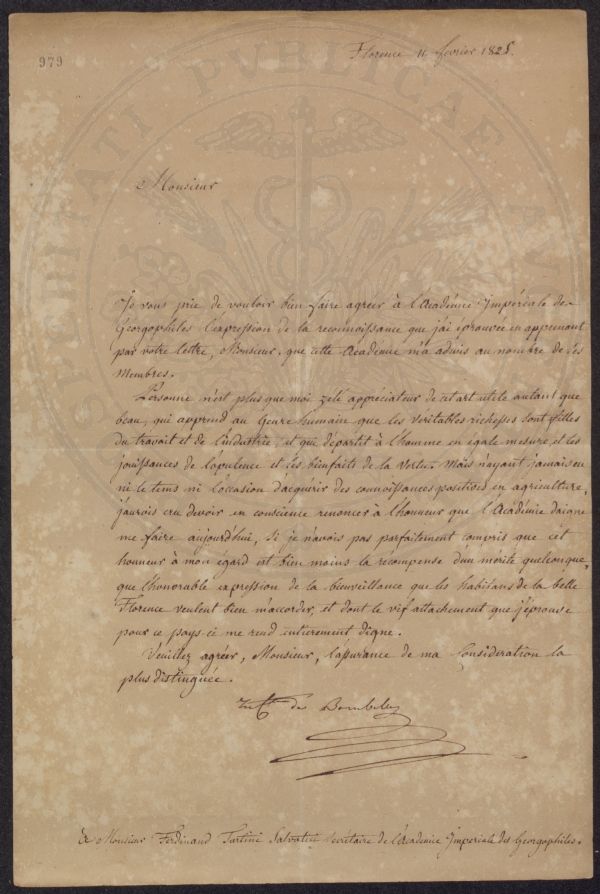 979
Florence 11 fevrier 1825.
PROSPERITATI PUBLICAE AUGENDAE
Monsieur
Je vous prie de vouloir bien faire agréer à l'Académie Impériale des
Géorgophiles l'expression de la reconnoissance que j'ai éprouvée en apprenant
par votre lettre, Monsieur, que cette Académie m'a admis au nombre de ses
Membres.
Personne n'est plus que moi zélé appréciateur de cet art utile autant que
beau, qui apprend au Genre humain que les véritables richesses sont filles
du travail et de l'industrie, et qui départit à l'homme en égale mesure, et les
jouissances de l'opulence et les bienfaits de la Vertu. Mais n'ayant jamais eu
ni le tems ni l'occasion d'acquérir des connoissances positives en agriculture,
j'aurois cru devoir en conscience renoncer à l'honneur que l'Académie daigne
me faire aujourd'hui, si je n'avois pas parfaitement compris que cet
honneur à mon égard est bien moins la recompense d'un mérite quelconque,
que l'honorable expression de la bienveillance que les habitans de la belle
Florence veulent bien m'accorder, et dont le vif attachement que j'éprouve
pour ce pays-ci me rend entierement digne.
Veuillez agréer, Monsieur, l'assurance de ma Considération la
plus distinguée.
de Bombelles
à Monsieur Ferdinand Tartini Salvatici Secrétaire de l'Académie Impériale des Georgophiles.